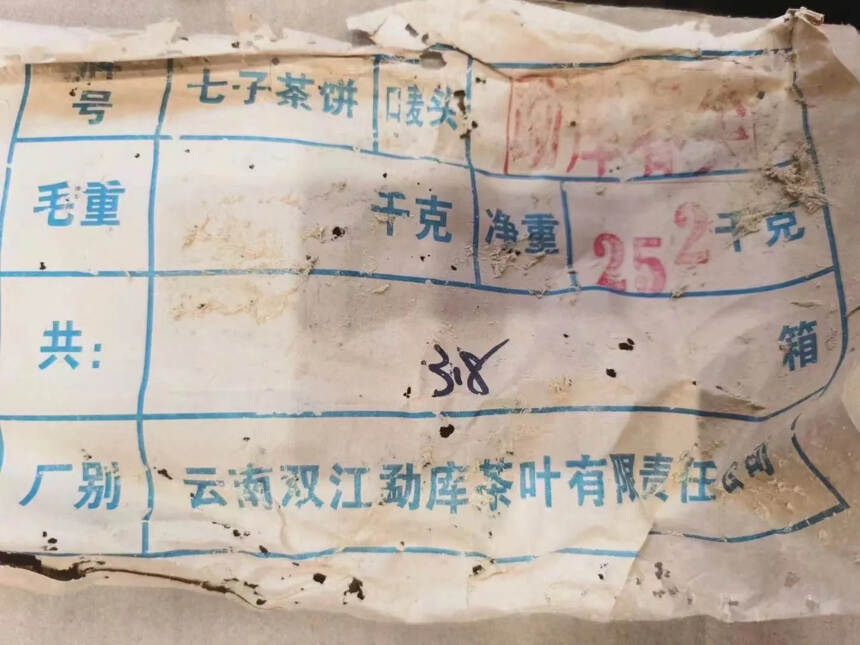 牌号 七子茶饼 口麦头 勐库
毛重 千克 净重 252 千克
共: 318 箱
厂别 云南双江勐库茶叶有限责任公司